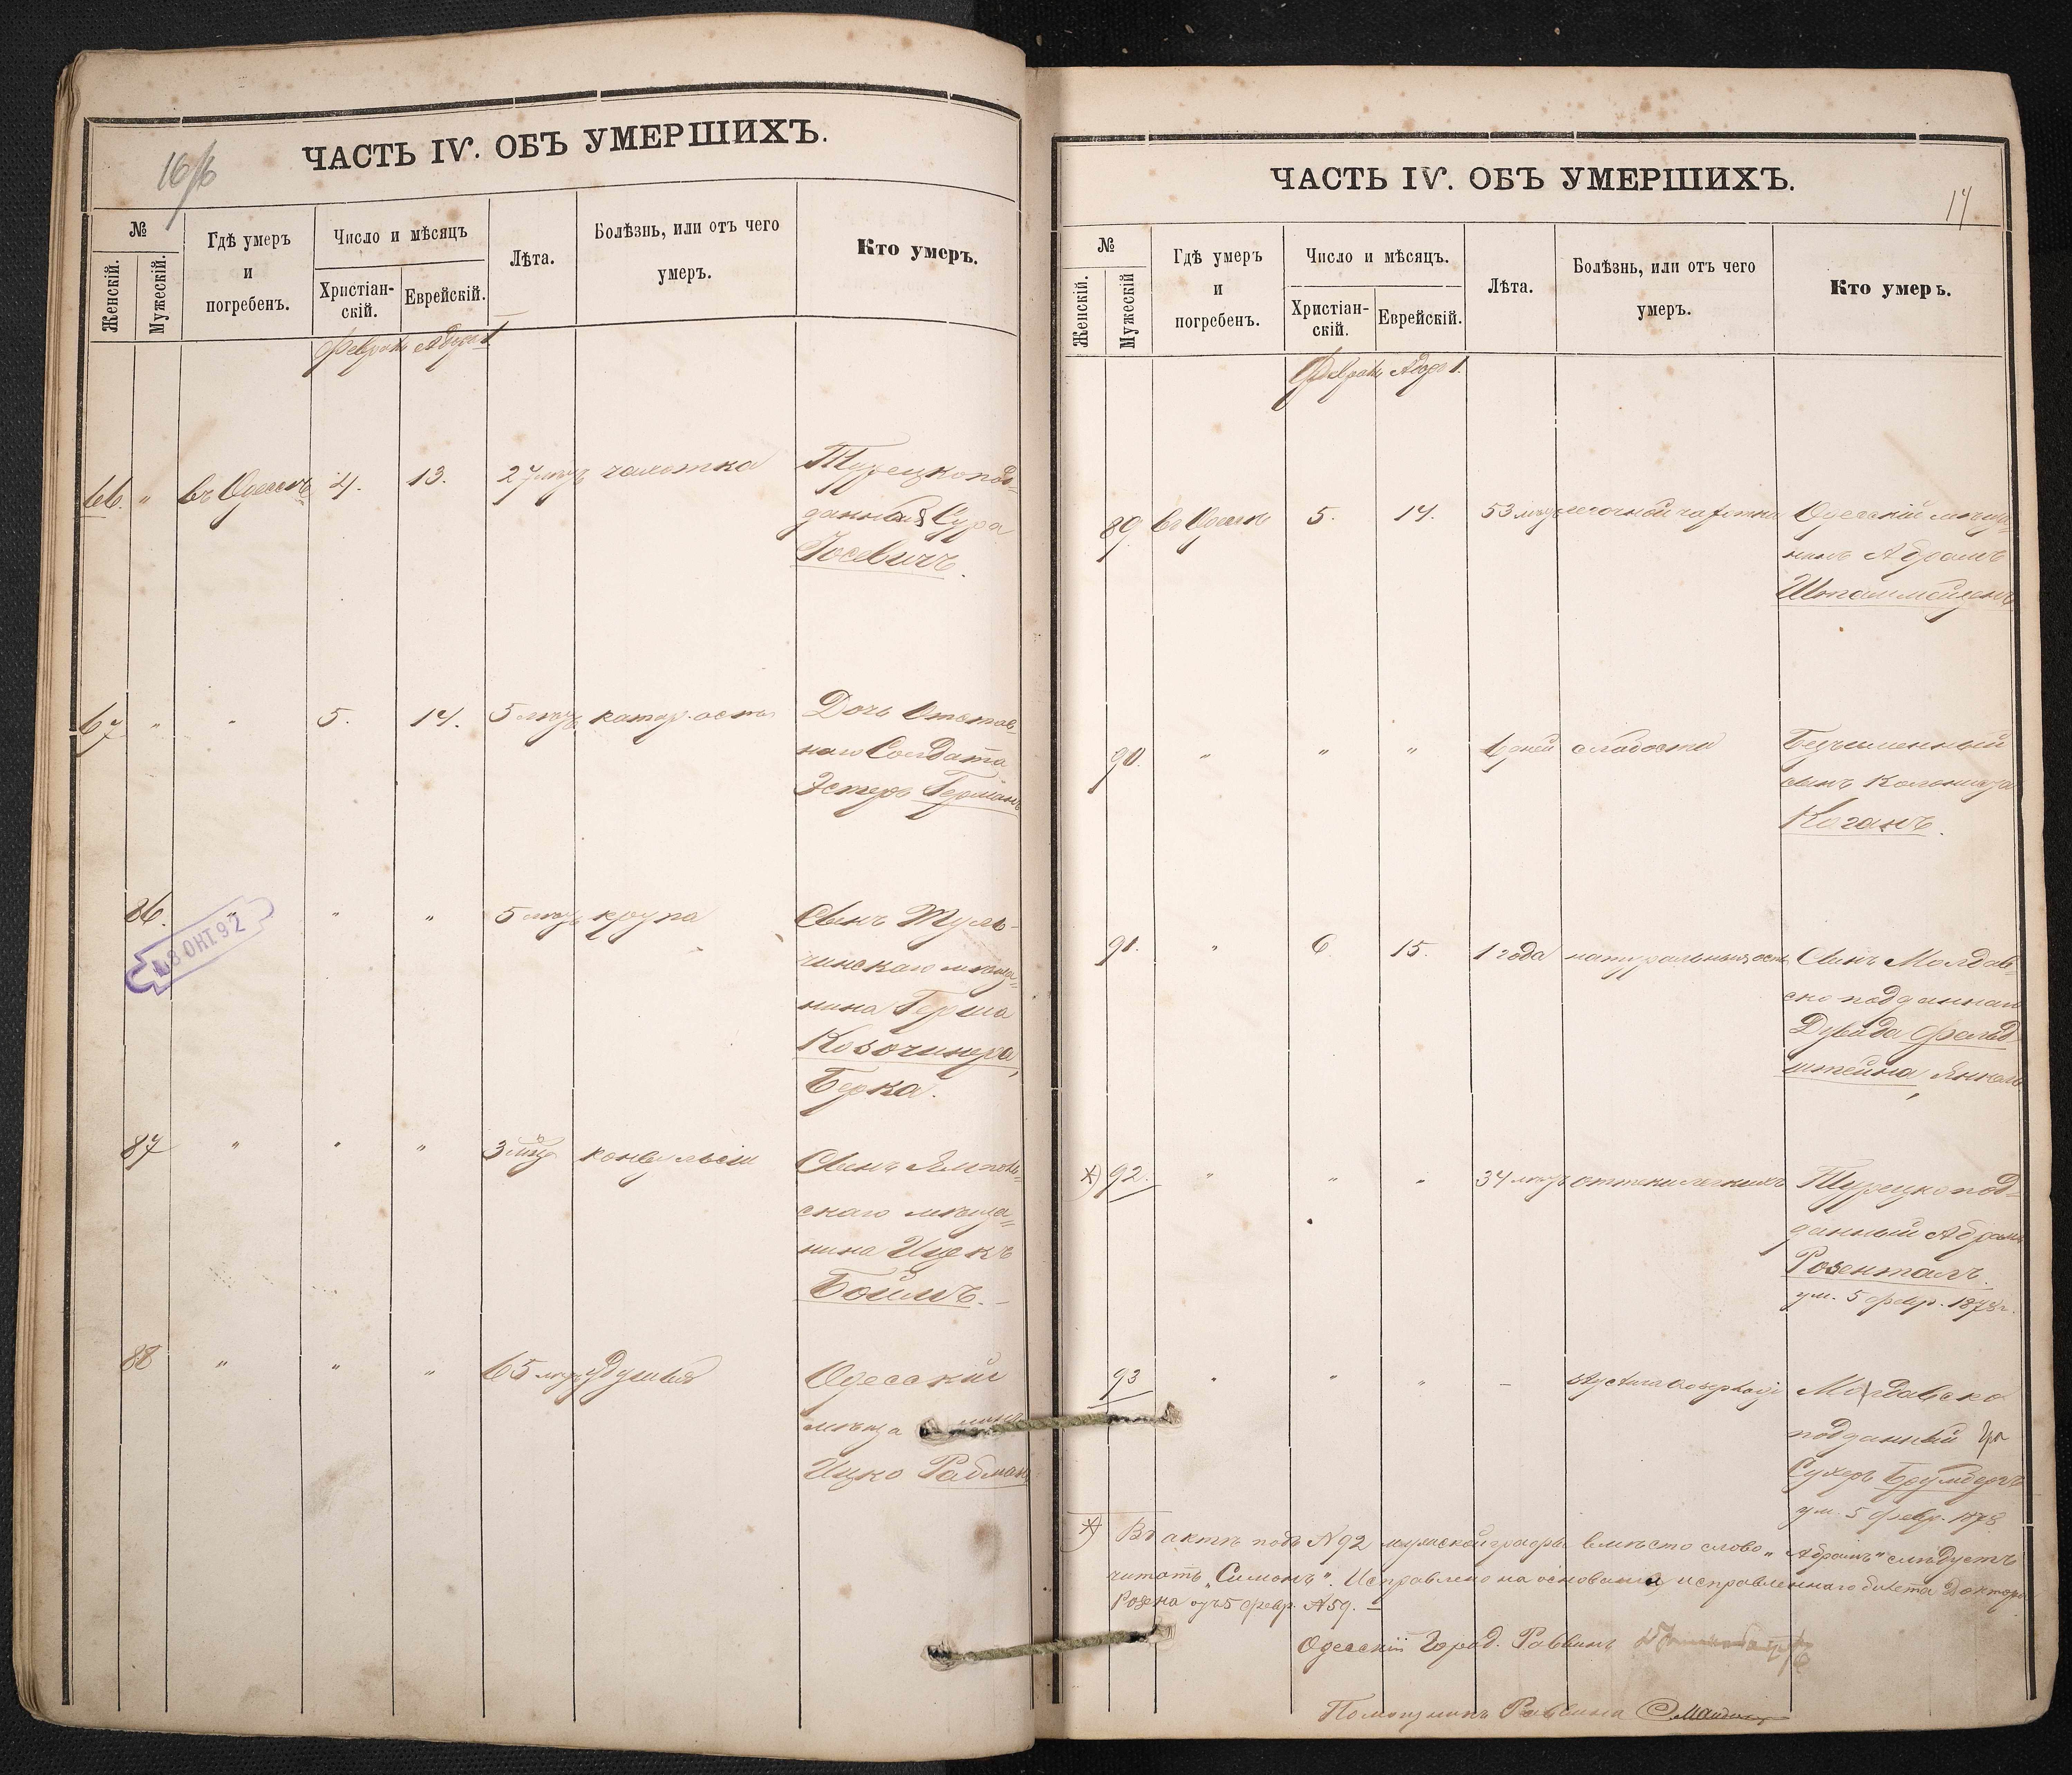 ЧАСТЬ IV. ОБЪ УМЕРШИХЪ.
№
Женскій.
Мужескій.
Гдѣ умеръ
и
погребенъ.
Число и мѣсяцъ
Христіан-
скій.
Еврейскій.
Лѣта.
Болѣзнь, или отъ чего
умеръ.
Кто умеръ.
Февраль Адара 1.
66. " въ Одессѣ 4. 13. 27 лѣтъ чахотка Турецкопод=
данная Сура
Іосевичъ.
67 " " 5. 14. 5 лѣтъ катар. оспы Дочь Отстав=
наго Солдата
Эстеръ Германъ
86. " " " 5 лѣтъ крупа Сынъ Туль-
чинскаго мѣща=
нина Герша
Козочинера,
Берка.
87 " " " 3 конвульсіи Сынъ Ямполь=
скаго мѣща=
нина Ицекъ
Боймъ.
88 " " " 65 лѣтъ удушья Одесскій
мѣщанинъ
Ицко Рабманъ
ЧАСТЬ IV. ОБЪ УМЕРШИХЪ.
17
№
Женскій.
Мужескій
Гдѣ умеръ
и
погребенъ.
Число и мѣсяцъ.
Христіан-
скій.
Еврейскій.
Лѣта.
Болѣзнь, или отъ чего
умеръ.
Кто умеръ.
Февраль Адара 1.
89 Въ Одессѣ 5. 14. 53 лѣтъ легочной чахотки Одесскій мѣща=
нинъ Абрамъ
90. " " " 6 дней слабости Безъименный
сынъ Колониста
Коганъ.
91. " 6 15. 1 года натуральныя оспы Сынъ Молдав=
ско подданнаго
Дувида Фельд=
штейна, Янкель
*) 92. " " " 34 лѣтъ оттека легкихъ Турецкопод=
данный Абрамъ
Розенталъ.
ум. 5 февр. 1878 г.
93 " " " — Молдавско
подданный
Сухеръ
ум. 5 февр. 1878
*) Въ актѣ подъ N 92 мужской графы вмѣсто слово „Абрамъ" слѣдуетъ
читать „Симонъ". Исправлено на основаніи исправленнаго билета Доктора
Розена отъ 5 февр. N 59. —
Одесскій Город. Раввинъ
Помощникъ Раввина